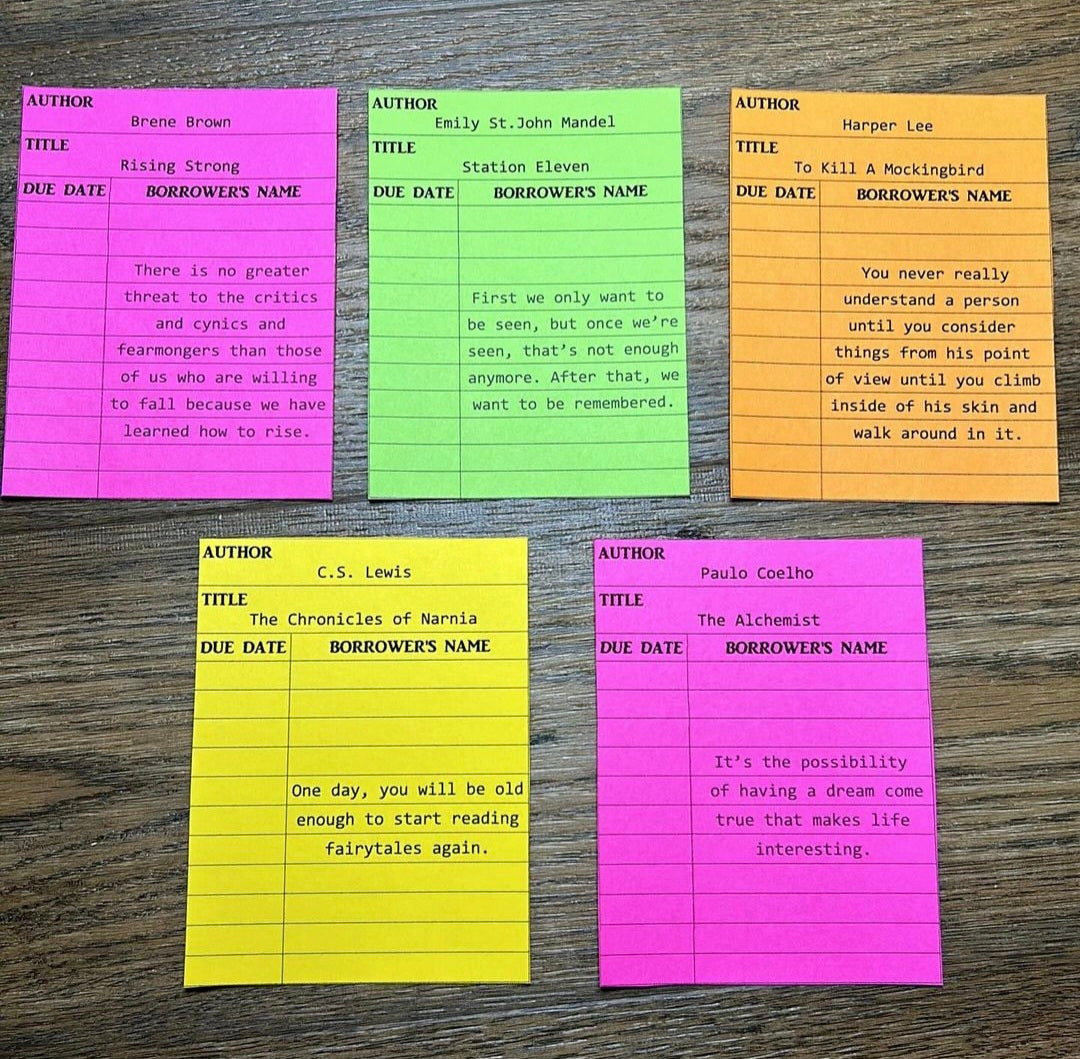 AUTHOR
Brene Brown
TITLE
Rising Strong
DUE DATE BORROWER'S NAME
There is no greater
threat to the critics
and cynics and
fearmongers than those
of us who are willing
to fall because we have
learned how to rise.
AUTHOR
Emily St.John Mandel
TITLE
Station Eleven
DUE DATE BORROWER'S NAME
First we only want to
be seen, but once we're
seen, that's not enough
anymore. After that, we
want to be remembered.
AUTHOR
Harper Lee
TITLE
To Kill A Mockingbird
DUE DATE BORROWER'S NAME
You never really
understand a person
until you consider
things from his point
of view until you climb
inside of his skin and
walk around in it.
AUTHOR
C.S. Lewis
TITLE
The Chronicles of Narnia
DUE DATE BORROWER'S NAME
One day, you will be old
enough to start reading
fairytales again.
AUTHOR
Paulo Coelho
TITLE
The Alchemist
DUE DATE BORROWER'S NAME
It's the possibility
of having a dream come
true that makes life
interesting.